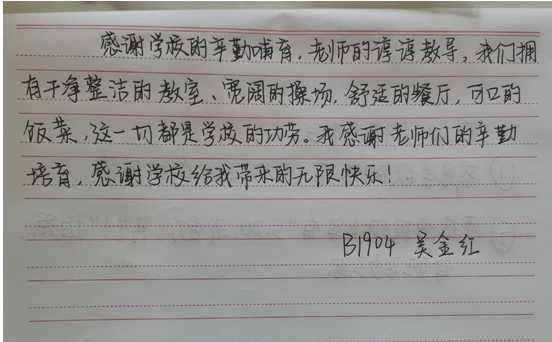 感谢学校的辛勤哺育，老师的谆谆教导。我们拥
有干净整洁的教室、宽阔的操场，舒适的餐厅，可口的
饭菜，这一切都是学校的功劳。我感谢老师们的辛勤
培育，感谢学校给我带来的无限快乐！
B1904 吴金红